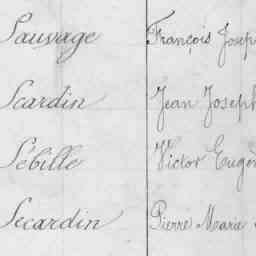 Sauvage François Josep
Scardin Jean Joseph
Sébille Victor Eugèn
Secardin Pierre Marie